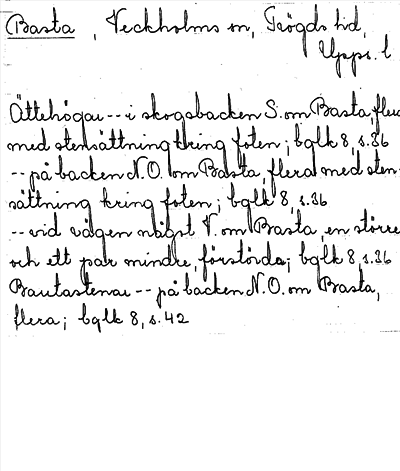 Basta, Veckholms sn, Trögds hd,
Upps. l
Ättehögar -- i skogsbacken S. om Basta, flera
med stensättning kring foten; bglk 8, s.36
-- på backen N.O. om Basta, flera med sten-
sättning kring foten; bglk 8, s.36
-- vid vägen något V. om Basta, en större
och ett par mindre, förstörda; bglk 8, s.36
Bautastenar -- på backen N.O. om Basta,
flera; bglk 8, s.42